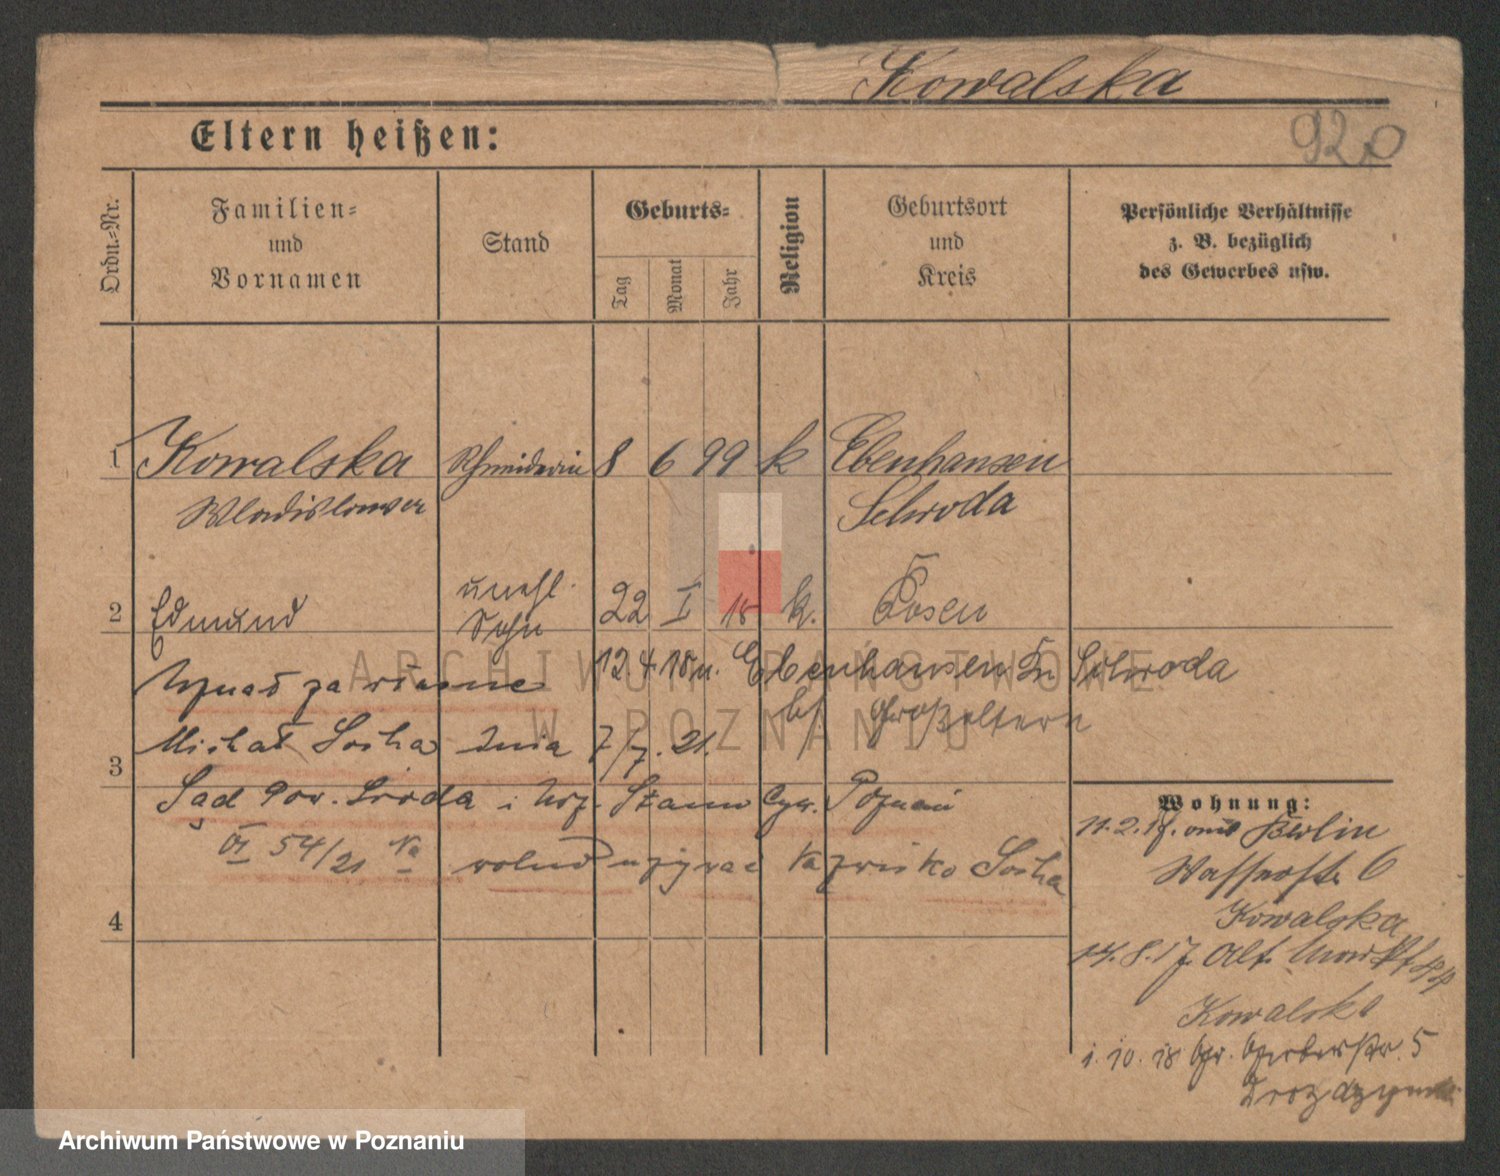 Kowalska
Eltern heißen:
920
Ordn.-Nr.
Familien-
und
Vornamen
Stand
Geburts-
Tag
Monat
Jahr
Religion
Geburtsort
und
Kreis
Persönliche Verhältnisse
z. B. bezüglich
des Gewerbes usw.
1 Kowalska Schneiderin 8 6 99 k Ebenhausen
Wladislawa Schroda
2 Edmund unehl. Sohn 22 I 18 k. Posen
12.4.18 n. Ebenhausen Kr. Schroda
b/ Großeltern
Uznał za własne
3 Michał Socha dnia 7/7. 21.
Sąd Pow. Środa i Urz. Stanu Cyw. Poznań
VI 54/21 Na wolno używać nazwisko Socha
4
Wohnung:
11.2.17. Berlin
6
Kowalska
14.8.17. Alt. Markt
Kowalska
1.10.18 Gr. Gerberstr. 5
ARCHIWUM PAŃSTWOWE
W POZNANIU
Archiwum Państwowe w Poznaniu